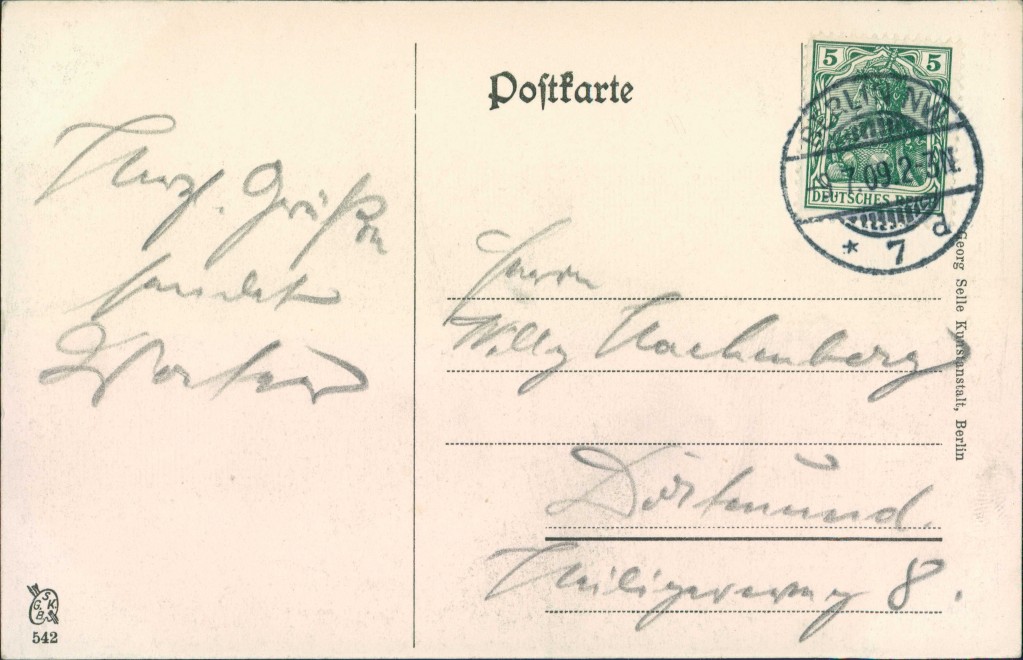 Postkarte
5 5
DEUTSCHES REICH
BERLIN NW
9.7.09.2-3N.
* 7 d
Herzl. Grüße
sendet
Herrn
Willy
Dortmund.
Heiligerweg 8.
Georg Selle Kunstanstalt, Berlin
G S K B
542